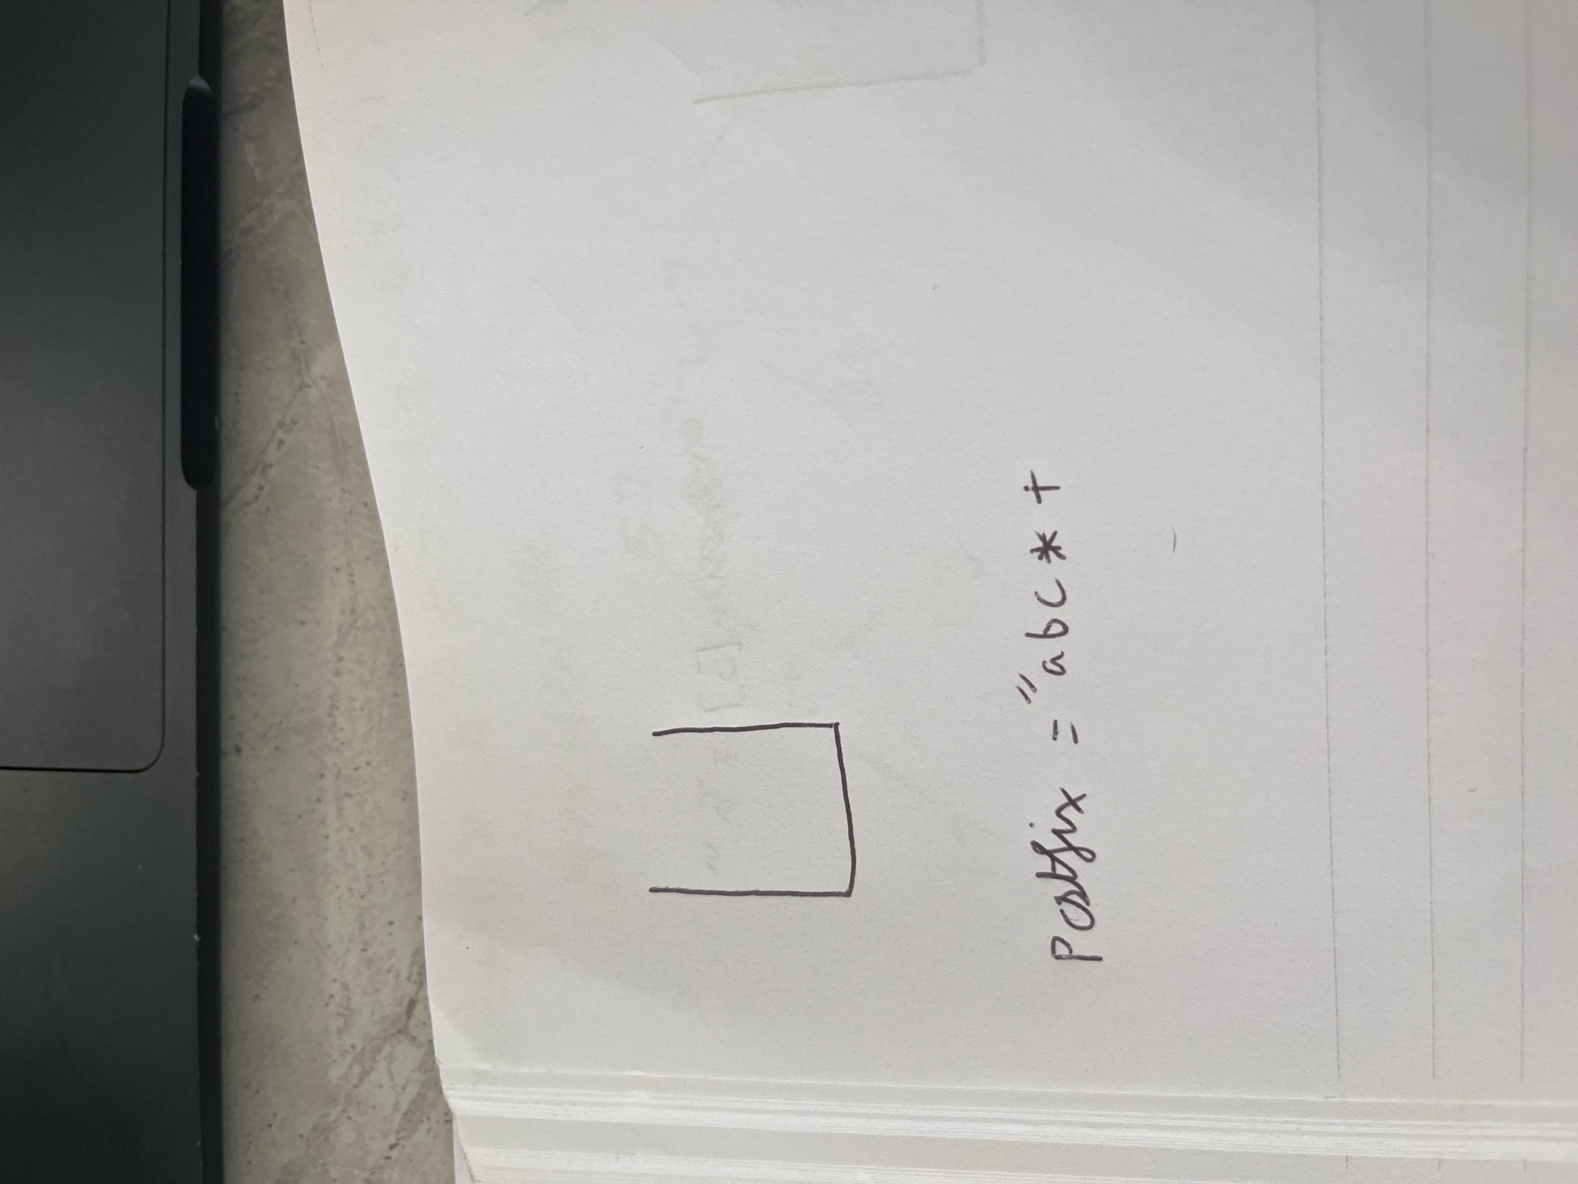 Postfix = "abc*+